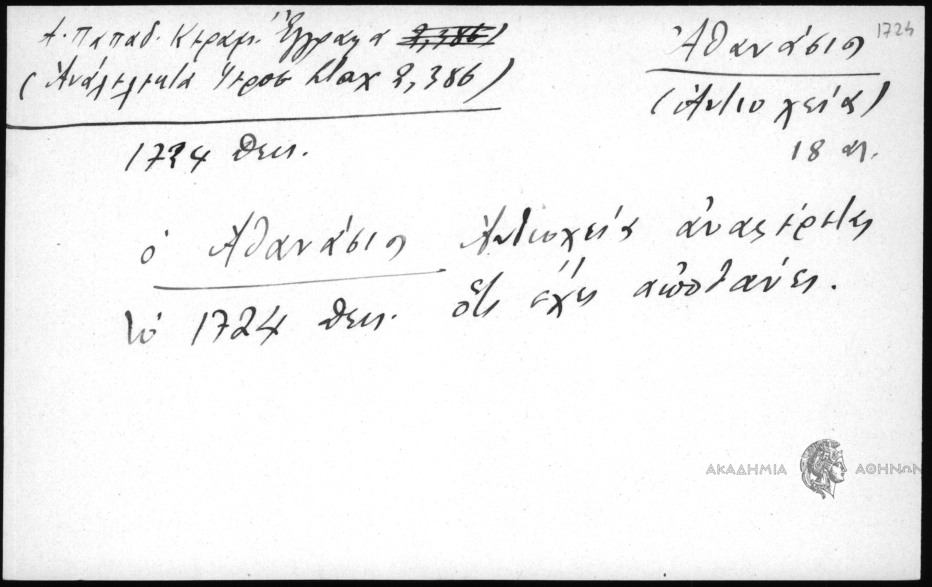 Α. Παπαδ. Κεραμ. Έγγραφα 2,386)
(Ἀνάλεκτα Ἱεροσ Σταχ 2,386)
Ἀθανάσιο 1724
(Ἀντιοχεία)
18 αι.
1724 Θεκ.
ὁ Ἀθανάσιο Ἀντιοχεία ἀναφέρεται
τό 1724 Θεκ. ὅτι ἔχει αποθάνει.
ΑΚΑΔΗΜΙΑ ΑΘΗΝΩΝ